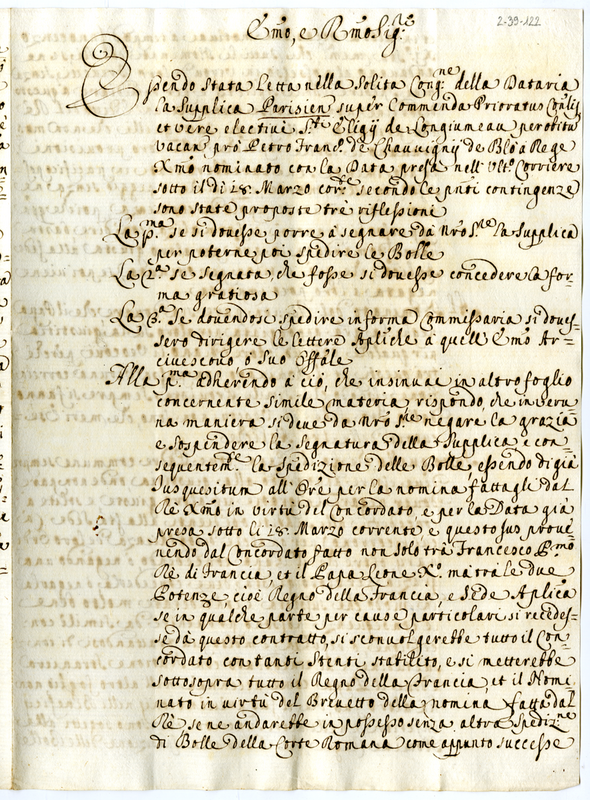 2-39-122
Emo, e Rmo Sig.re
Essendo Stata Letta nella Solita Cong.ne della Dataria
la Supplica Parisien super Commenda Prioratus
et vere electivi S.ti Eligij de Longiumeau per obitū
vacan. pro Petro Franc.o de Chauvignij de Blo à Rege
Xmo nominato con la Data presa nell'Ult.o Corriere
sotto il dì 28. Marzo cor.te secondo le pnti contingenze
sono state proposte tre riflessioni
La p.ma se si dovesse porre à segnare da Nro S.re la Supplica
per poterne poi spedire le Bolle
La 2.a se segnata, che fosse si dovesse concedere la for=
ma gratiosa
La 3.a Se dovendosi spedire in forma Commissaria si doves=
sero dirigere le lettere Apliche à quell'Emo Ar=
civescovo, ò suo Offāle
Alla p.ma adherendo à ciò, che insinuai in altro foglio
concernente simile materia, rispondo, che in veru=
na maniera si deve da Nro S.re negare la grazia
e sospendere la Segnatura della Supplica e con=
sequentem.te la Spedizione delle Bolle essendo di già
Jus quesitum all'Ore per la nomina fattagli dal
Rè Xmo in virtù del Concordato, e per la Data già
presa sotto li 28. Marzo corrente e questo Jus prove=
nendo dal Concordato fatto non solo trà Francesco P.mo
Rè di Francia, et il Papa Leone X.o mà trà le due
Potenze cioè Regno della Francia, e Sede Aplica
se in qualche parte per cause particolari si recedes=
se da questo contratto, si sconvolgerebbe tutto il Con=
cordato con tanti Stenti stabilito, e si metterebbe
sottosopra tutto il Regno della Francia, et il Nomi=
nato in virtù del Brevetto della nomina fatta dal
Rè se ne andarebbe in possesso senza altra spediz.ne
di Bolle della Corte Romana come appunto successe